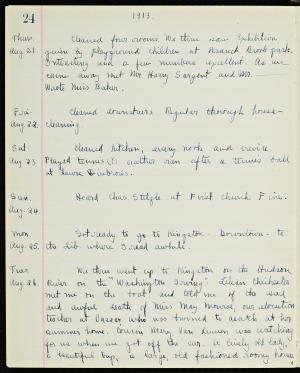 24
1913.
Thurs. Cleaned four rooms. We three saw Exhibition
Aug 21. given by Playground children at Branch Brook park.
Interesting and a few numbers excellent. As we
came away met Mr. Harry Sargent and Mr.
Wrote Miss Baker.
Fri. Cleaned downstairs. Regular thorough house-
Aug. 22. cleaning.
Sat. Cleaned kitchen, every nook and crevice.
Aug. 23 Played tennis rather ran after a tennis ball
at
Sun. Heard Chas. Stelzle at First Church. Fine.
Aug. 24.
Mon. Got ready to go to Kingston. Downtown - to
Aug. 25. the lib. where I read awhile.
Tues. We three went up to Kingston on the Hudson
Aug. 26. River on the "Washington Irving". Lilian Chichester
met me on the boat and told me of the sad
and awful death of Miss May Monroe, our elocution
teacher at Vassar, who was burned to death at her
summer home. Cousin Mary Van was watching
for us when we got off the car. A lively old lady,
a beautiful trip, a large old fashioned roomy house